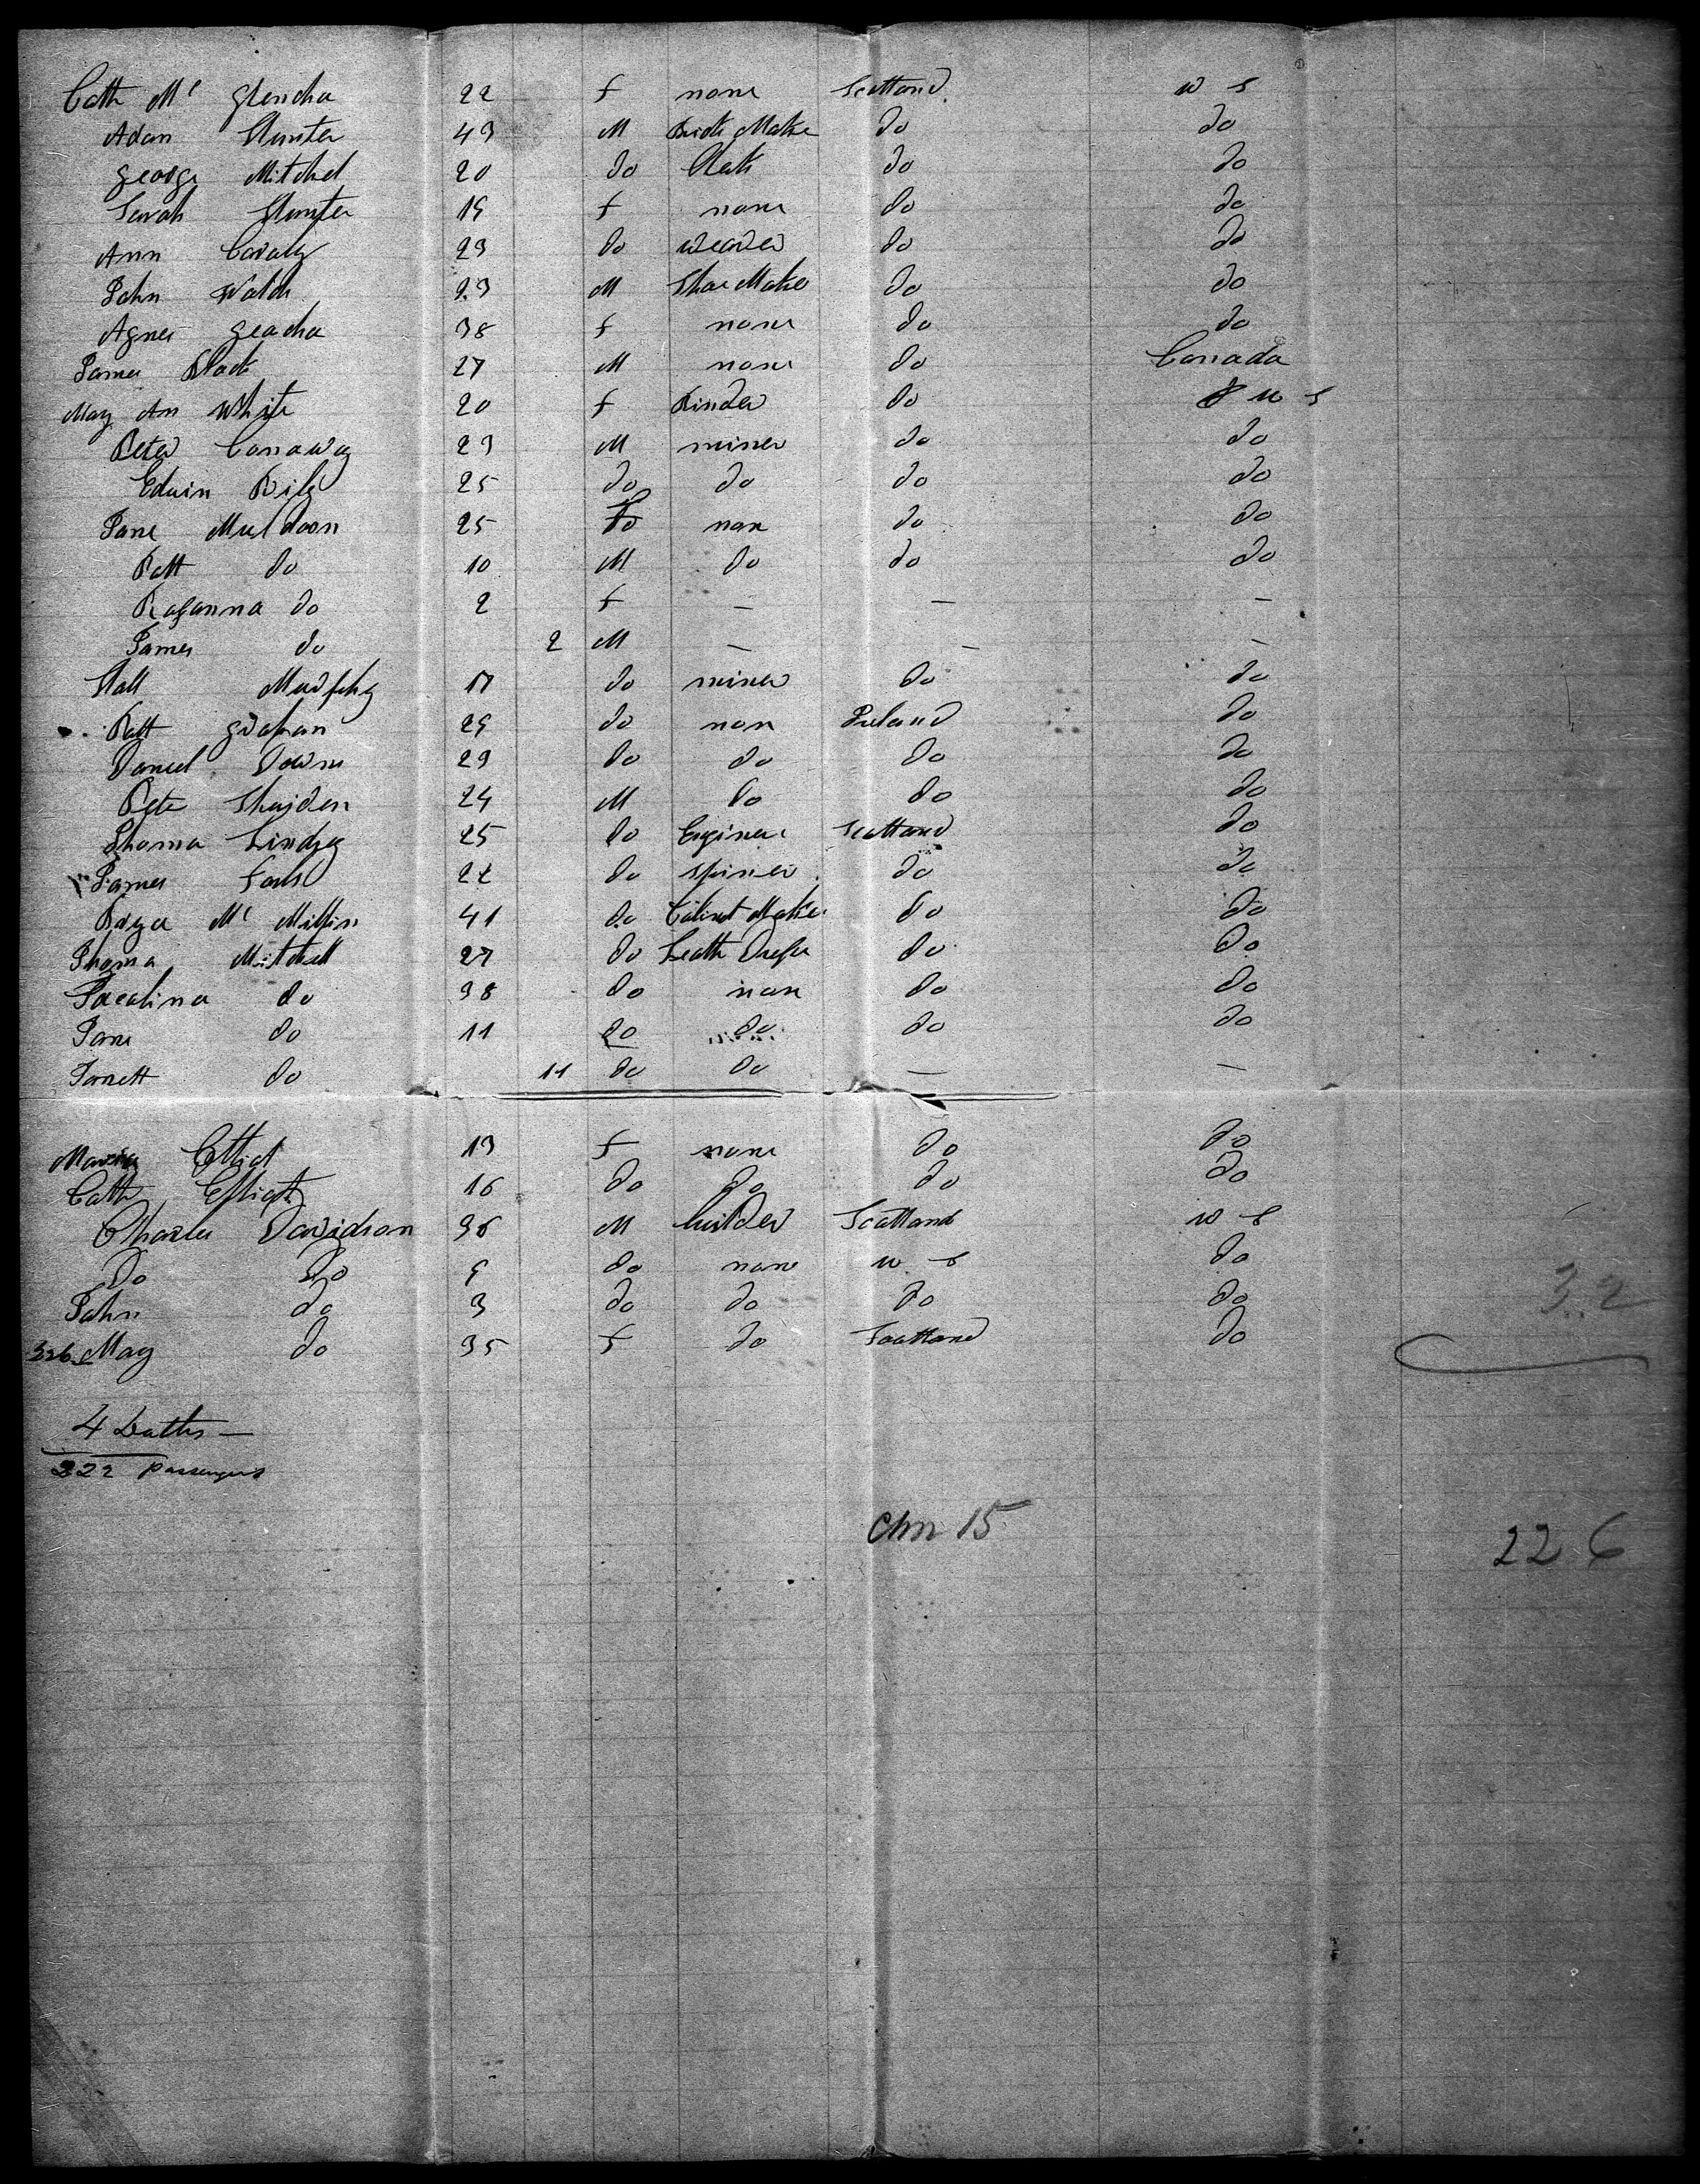 Cath Mc Glencha 22 f none Scotland w s
Adam Hunter 43 M Brick Maker do do
George Mitchel 20 do Clark do do
Sarah Hunter 19 f none do do
Ann 23 do weaver do do
John Walch 23 M Shoe Maker do do
Agnes geacha 38 f none do do
James Black 27 M none do Canada
May An White 20 f Binder do w s
Peter Conaway 23 M miner do do
Edwin Rily 25 do do do do
Jane Muldoon 25 non do do
Patt do 10 M do do do
Rosanna do 2 f — — —
James do 2 M — — —
Murfhy 17 do miner do do
Patt graham 29 do non Ireland do
Daniel Downs 29 do do do do
Pete 24 M do do do
Thoma Lindsy 25 do Enginer Scotland do
James 22 do spiner do do
Mc Millin 41 do Cabinet Maker do do
Thoma Mitchell 27 do Leath Dresser do do
do 38 do non do do
Jane do 11 do do do do
Jannett do 11 do do — —
Elliot 13 f none do do
Cath Elliot 16 do do do do
Charles Davidson 36 M builder Scotland w s
Do Do 9 do none w s do
John do 3 do do do do
326 May do 35 f do Scotland do
32
4 Deaths —
222 Passengers
chn 15
226